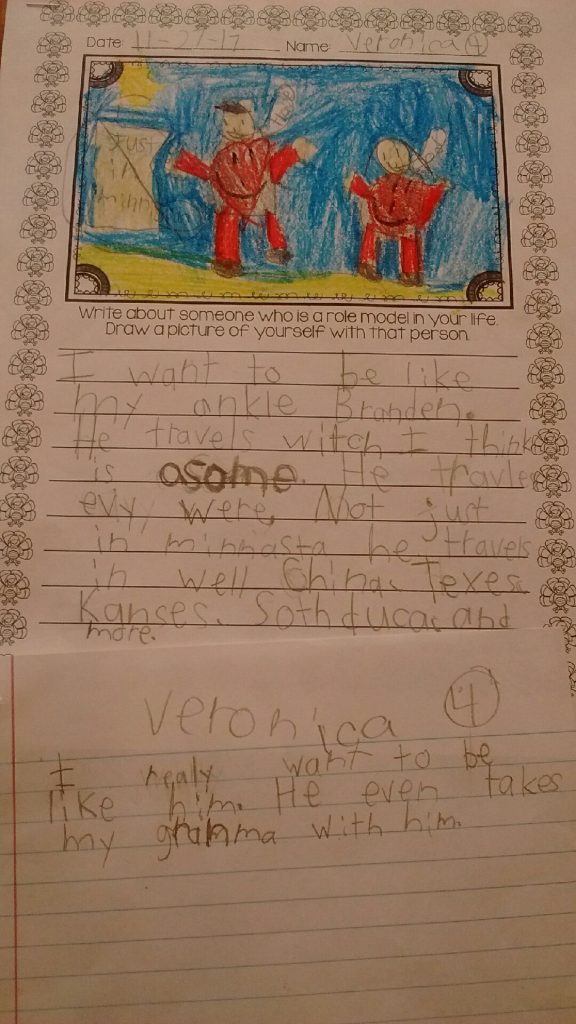 Date: 11-27-17 Name: Veronica 4
Just
in
minn
Write about someone who is a role model in your life.
Draw a picture of yourself with that person.
I want to be like
my ankle Branden.
He travels witch I think
is asome. He travles
evy were, Not just
in minnasta he travels
in well China, Texes,
Kanses, Soth ducac and
more.
Veronica 4
I realy want to be
like him. He even takes
my gramma with him.